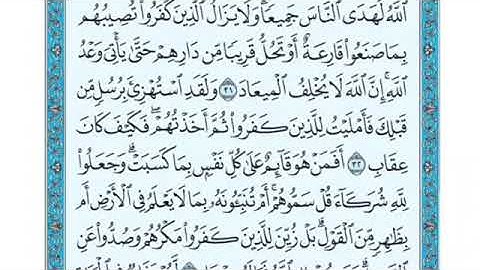 اللَّهُ لَهَدَى النَّاسَ جَمِيعًا ۗ وَلَا يَزَالُ الَّذِينَ كَفَرُوا تُصِيبُهُم
بِمَا صَنَعُوا قَارِعَةٌ أَوْ تَحُلُّ قَرِيبًا مِّن دَارِهِمْ حَتَّىٰ يَأْتِيَ وَعْدُ
اللَّهِ ۚ إِنَّ اللَّهَ لَا يُخْلِفُ الْمِيعَادَ ٣١ وَلَقَدِ اسْتُهْزِئَ بِرُسُلٍ مِّن
قَبْلِكَ فَأَمْلَيْتُ لِلَّذِينَ كَفَرُوا ثُمَّ أَخَذْتُهُمْ ۖ فَكَيْفَ كَانَ
عِقَابِ ٣٢ أَفَمَنْ هُوَ قَائِمٌ عَلَىٰ كُلِّ نَفْسٍ بِمَا كَسَبَتْ ۗ وَجَعَلُوا
لِلَّهِ شُرَكَاءَ قُلْ سَمُّوهُمْ ۚ أَمْ تُنَبِّئُونَهُ بِمَا لَا يَعْلَمُ فِي الْأَرْضِ أَم
بِظَاهِرٍ مِّنَ الْقَوْلِ ۗ بَلْ زُيِّنَ لِلَّذِينَ كَفَرُوا مَكْرُهُمْ وَصُدُّوا عَنِ